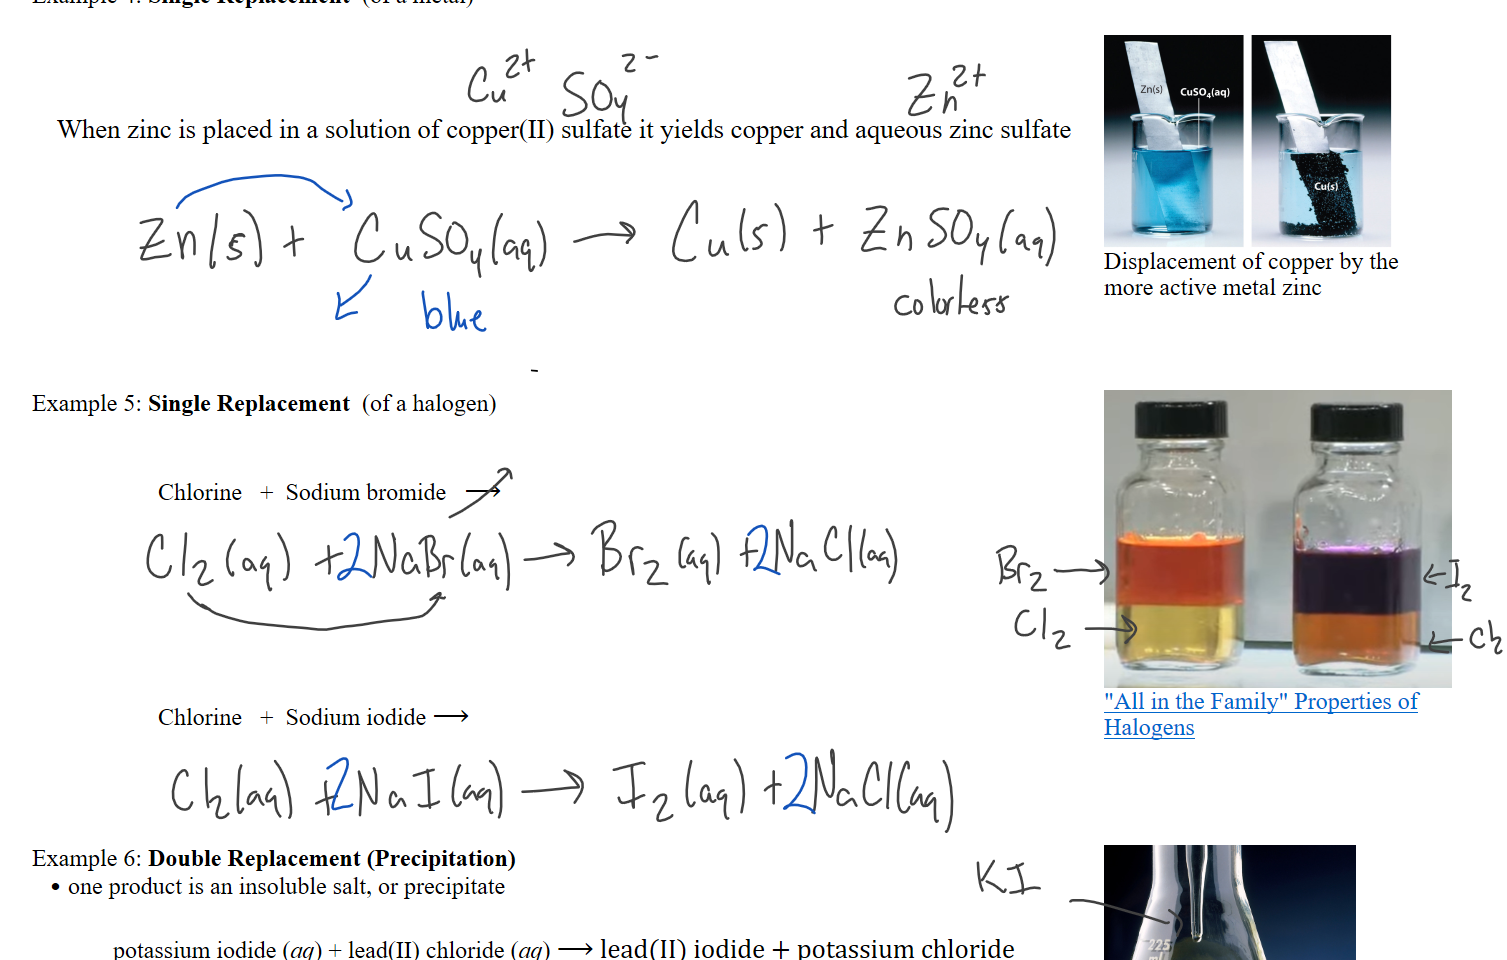 Example 4: Single Replacement (of a metal)
Cu²⁺ SO₄²⁻ Zn²⁺
When zinc is placed in a solution of copper(II) sulfate it yields copper and aqueous zinc sulfate
Zn(s) + CuSO₄(aq) → Cu(s) + ZnSO₄(aq)
blue
colorless
Zn(s)
CuSO₄(aq)
Cu(s)
Displacement of copper by the
more active metal zinc
Example 5: Single Replacement (of a halogen)
Chlorine + Sodium bromide →
Cl₂(aq) + 2NaBr(aq) → Br₂(aq) + 2NaCl(aq)
Br₂ →
Cl₂ →
← I₂
← Cl₂
"All in the Family" Properties of
Halogens
Chlorine + Sodium iodide →
Cl₂(aq) + 2NaI(aq) → I₂(aq) + 2NaCl(aq)
Example 6: Double Replacement (Precipitation)
• one product is an insoluble salt, or precipitate
KI
225
ml
potassium iodide (aq) + lead(II) chloride (aq) → lead(II) iodide + potassium chloride